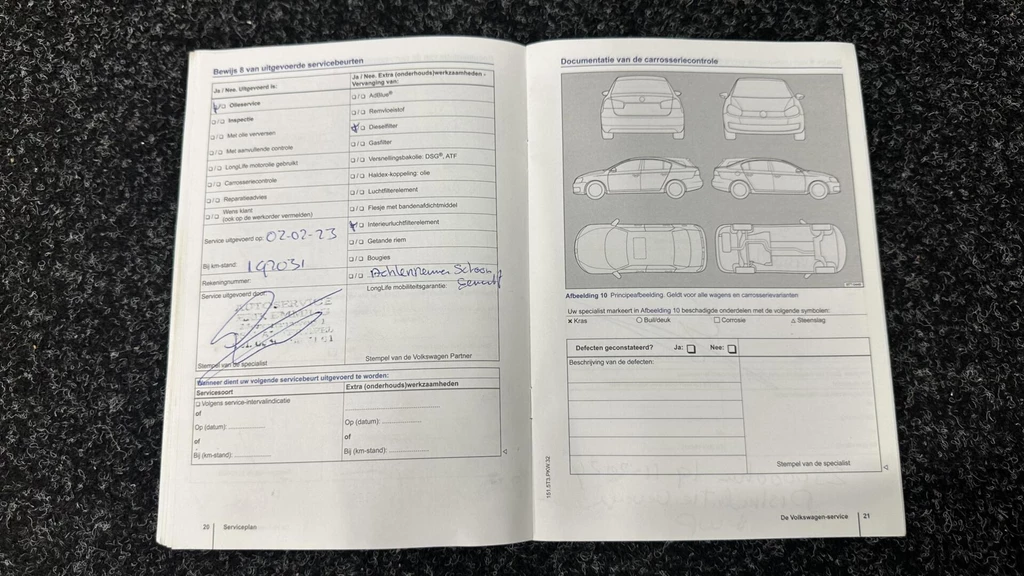 Bewijs 8 van uitgevoerde servicebeurten
Ja / Nee. Uitgevoerd is:
❑/❑ Olieservice
❑/❑ Inspectie
❑/❑ Met olie verversen
❑/❑ Met aanvullende controle
❑/❑ LongLife motorolie gebruikt
❑/❑ Carrosseriecontrole
❑/❑ Reparatieadvies
❑/❑ Wens klant
(ook op de werkorder vermelden)
Service uitgevoerd op: 02-02-23
Bij km-stand: 192031
Rekeningnummer:
Service uitgevoerd door:
AUTOSERVICE
Stempel van de specialist
Ja / Nee. Extra (onderhouds)werkzaamheden -
Vervanging van:
❑/❑ AdBlue®
❑/❑ Remvloeistof
❑/❑ Dieselfilter
❑/❑ Gasfilter
❑/❑ Versnellingsbakolie: DSG®, ATF
❑/❑ Haldex-koppeling: olie
❑/❑ Luchtfilterelement
❑/❑ Flesje met bandenafdichtmiddel
❑/❑ Interieurluchtfilterelement
❑/❑ Getande riem
❑/❑ Bougies
❑/❑ Achterremmen Schoon
LongLife mobiliteitsgarantie:
Stempel van de Volkswagen Partner
Wanneer dient uw volgende servicebeurt uitgevoerd te worden:
Servicesoort
❑ Volgens service-intervalindicatie
of
Op (datum):
of
Bij (km-stand):
Extra (onderhouds)werkzaamheden
Op (datum):
of
Bij (km-stand):
20 Serviceplan
Documentatie van de carrosseriecontrole
Afbeelding 10 Principeafbeelding. Geldt voor alle wagens en carrosserievarianten
Uw specialist markeert in Afbeelding 10 beschadigde onderdelen met de volgende symbolen:
✕ Kras ○ Buil/deuk □ Corrosie △ Steenslag
Defecten geconstateerd? Ja: ❑ Nee: ❑
Beschrijving van de defecten:
Stempel van de specialist
151.5T3.PKW.32
De Volkswagen-service 21